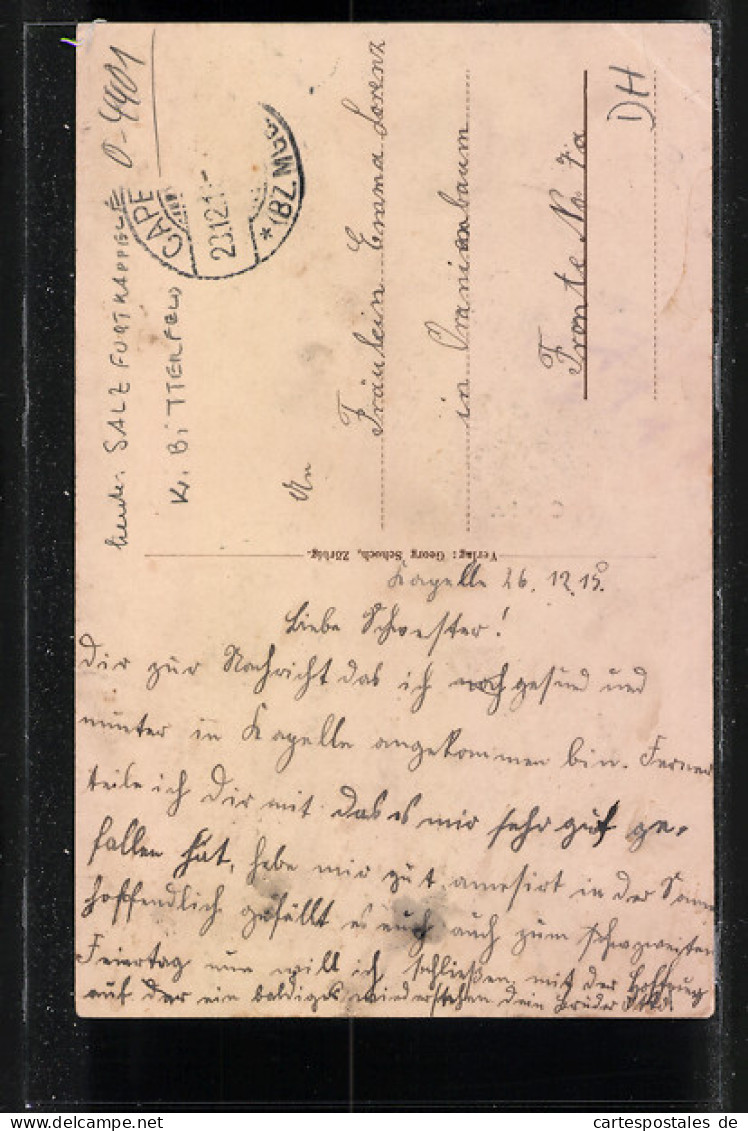 heute: SALZFURTKAPPELLE
O-4401
Kr. BITTERFELD
CAPE
23.12.1
*(BZ. 
DH
An
Fräulein Emma Lorenz
in Oranienbaum
Fronte No 7a
Verlag: Georg Schoch, Zörbig.
Kapelle 26.12.15.
Liebe Schwester!
Dir zur Nachricht das ich noch gesund und
munter in Kapelle angekommen bin. Ferner
teile ich Dir mit das es mir sehr gut ge-
fallen hat, habe mir gut amesirt in der
hoffendlich gefällt es euch auch zum zweiten
Feiertag nun will ich schließen mit der Hoffnung
auf der ein baldiges wiedersehen dein Bruder
cartespostales de